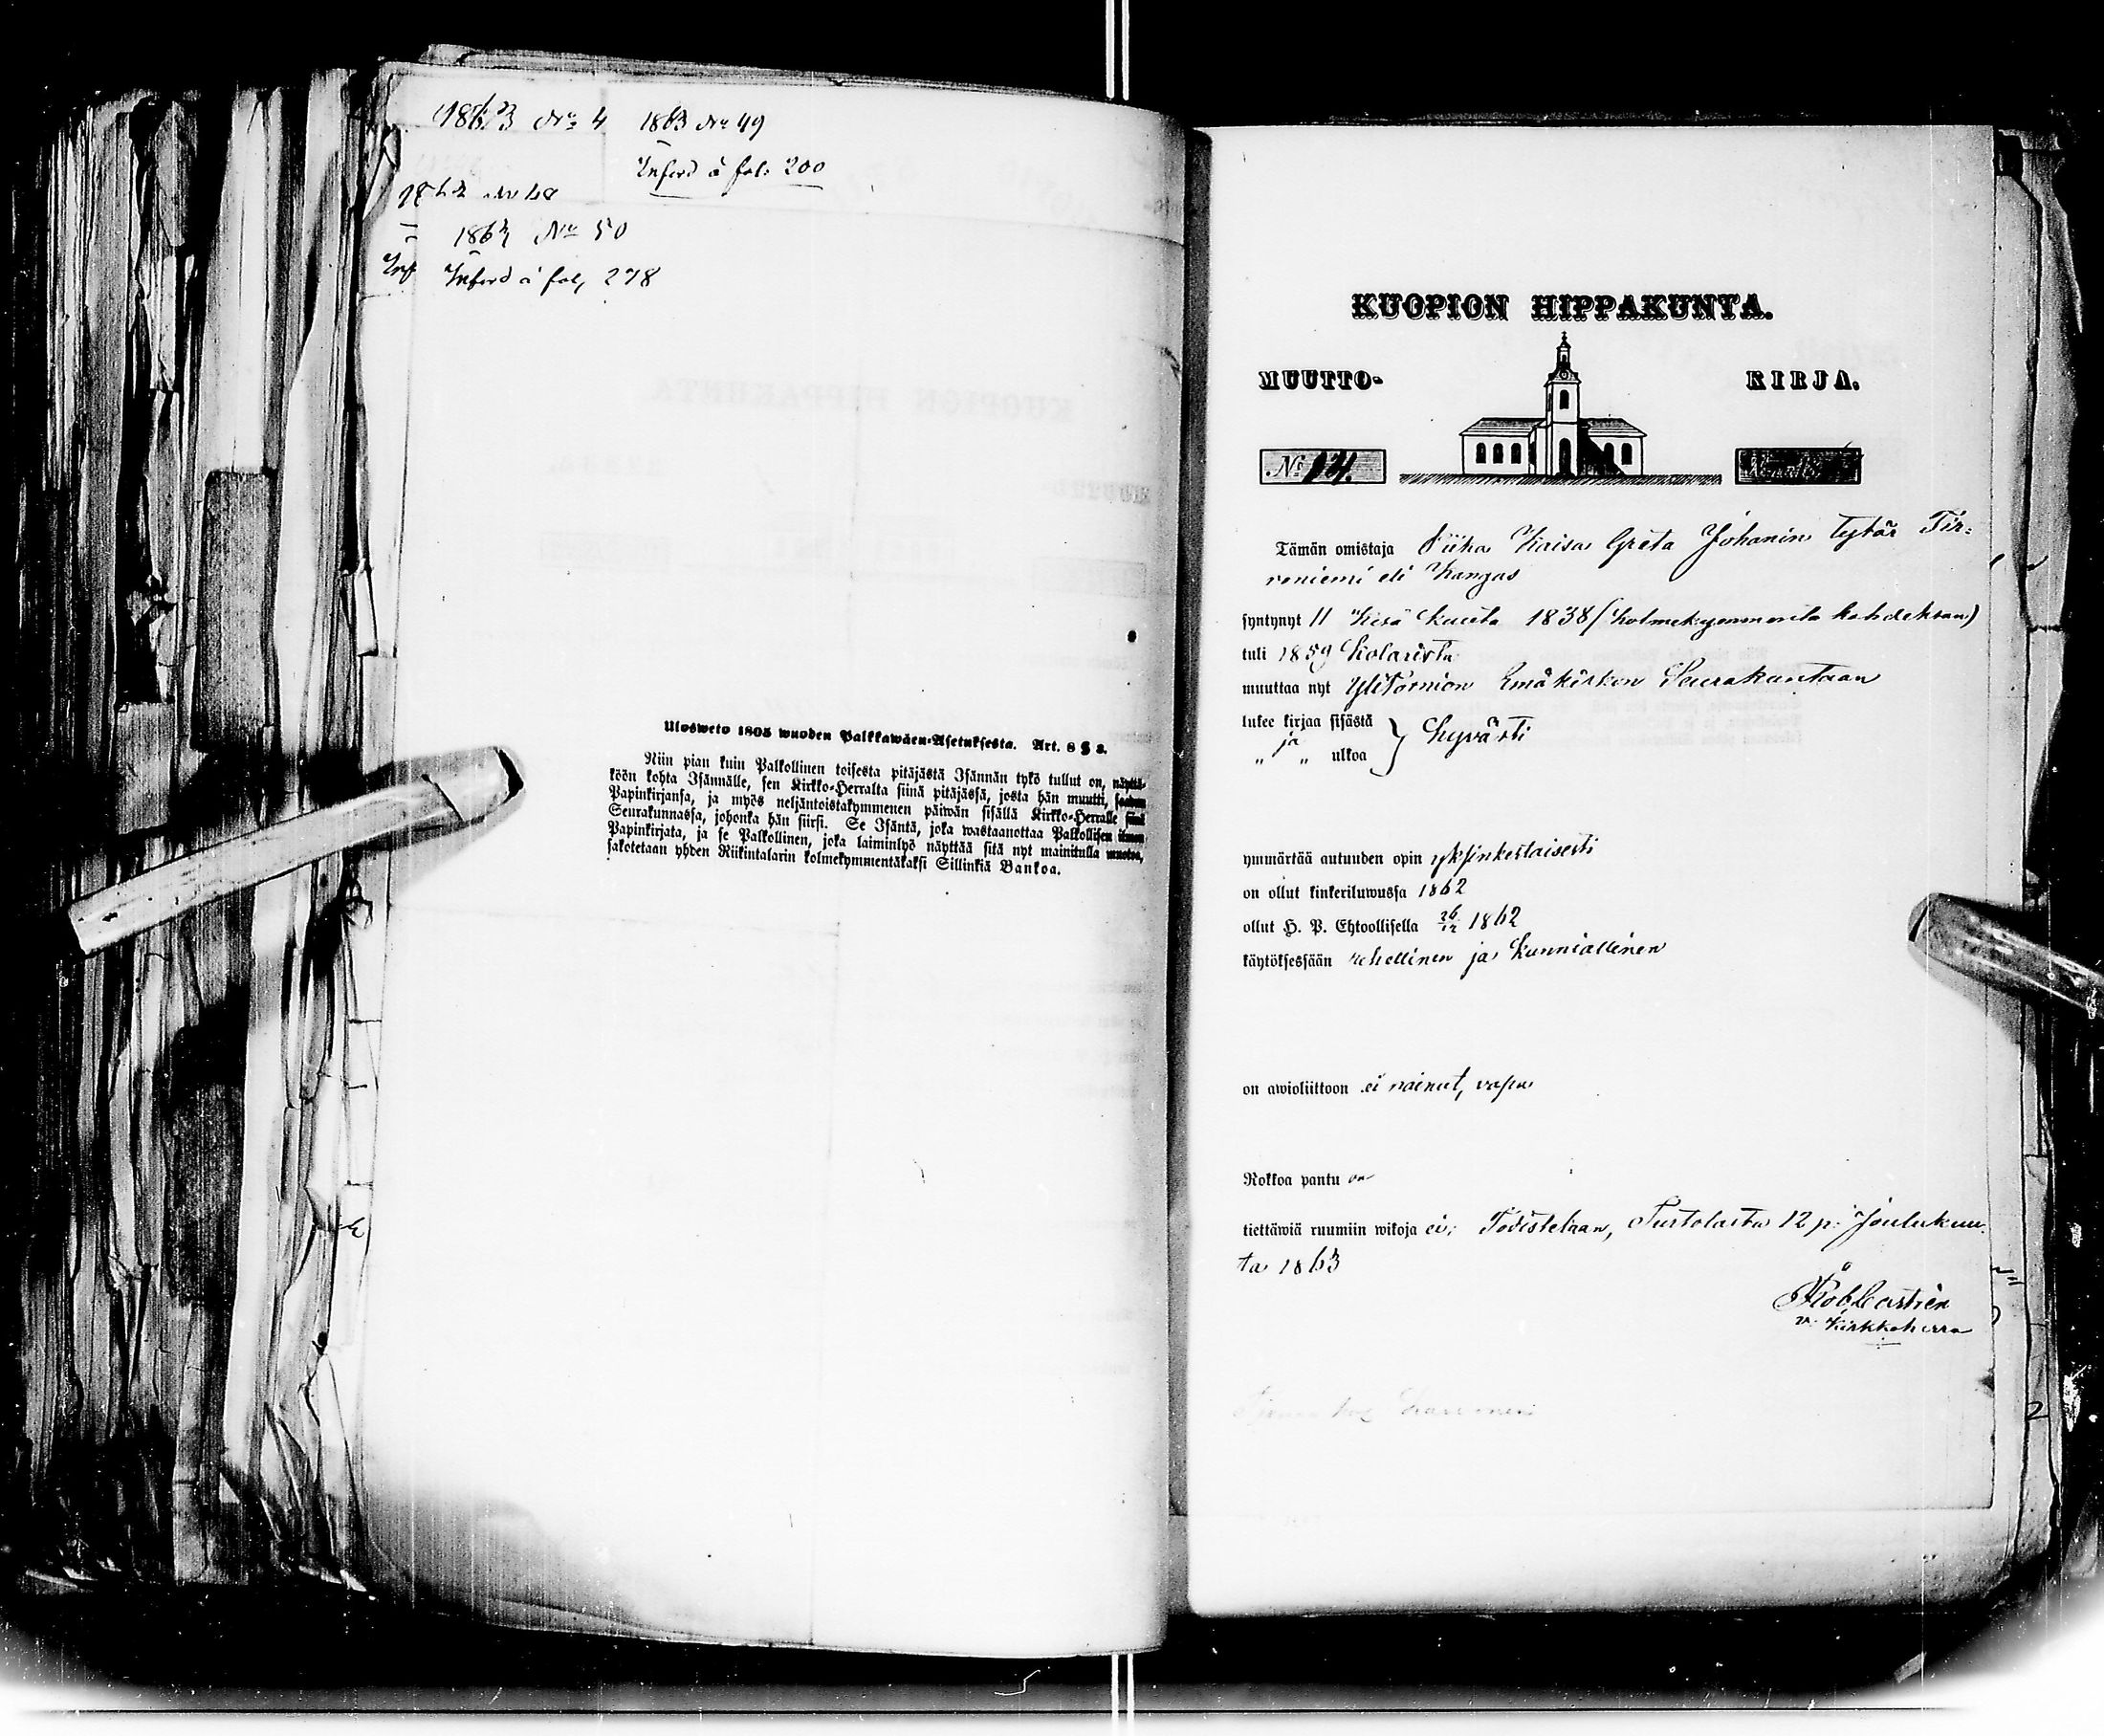 1863 No 4
1863 No 49
Inford å fol. 200
1863 No 50
Inf
Inford å fol, 278
Ulosweto 1805 wuoden Palkkawäen-Asetuksesta. Art. 8 § 2.
Niin pian kuin Palkollinen toisesta pitäjästä Isännän tykö tullut on, näyttä-
köön kohta Isännälle, sen Kirkko-Herralta siinä pitäjässä, josta hän muutti, saadun
Papinkirjansa, ja myös neljäntoistakymmenen päiwän sisällä Kirkko-Herralle siinä
Seurakunnassa, johonka hän siirsi. Se Isäntä, joka wastaanottaa Palkollisen ilman
Papinkirjata, ja se Palkollinen, joka laiminlyö näyttää sitä nyt mainitulla muotoa,
sakotetaan yhden Riikintalarin kolmekymmentäkaksi Sillinkiä Bankoa.
KUOPION HIPPAKUNTA.
MUUTTO- KIRJA.
No
Tämän omistaja Piika Kaisa Greta Johanin tytär Tir=
roniemi eli Kangas
syntynyt 11 Kesä kuuta 1838 (kolmekymmentä kahdeksan)
tuli 1859 Kolarista
muuttaa nyt YliTornion Emäkirkon Seurakuntaan
lukee kirjaa sisästä
ja } hyvästi
„ „ ulkoa
ymmärtää autuuden opin yksinkertaisesti
on ollut kinkeriluwussa 1862
ollut H. P. Ehtoollisella 26/12 1862
käytöksessään rehellinen ja kunniallinen
on awioliittoon ei nainut, vapa
Rokkoa pantu on
tiettäwiä ruumiin wikoja ei; Todistetaan, Turtolasta 12 p. Joulukuu
ta 1863
v. Kirkkoherra